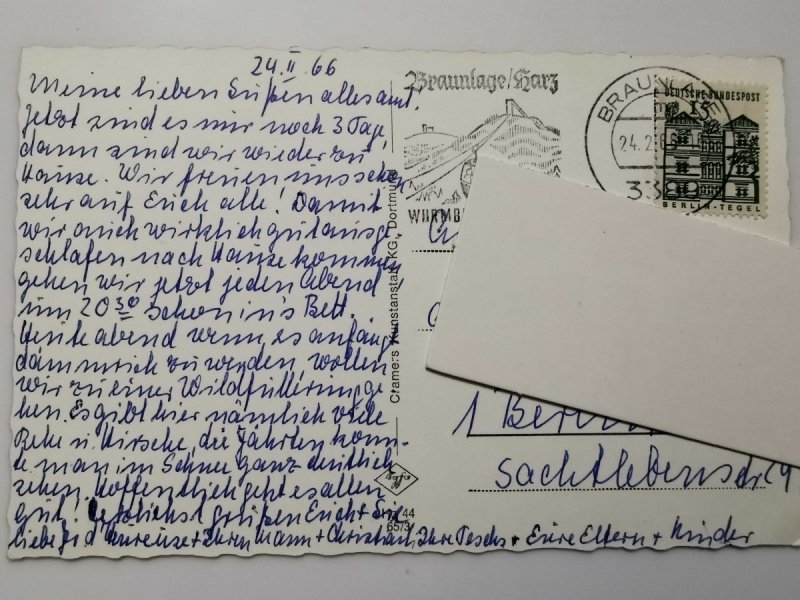 24.II.66
Meine lieben Süßen allesamt.
Jetzt sind es nur noch 3 Tage,
dann sind wir wieder zu
Hause. Wir freuen uns schon
sehr auf Euch alle! Damit
wir auch wirklich gut ausge-
schlafen nach Hause kommen,
gehen wir jetzt jeden Abend
um 20 30 schon in's Bett.
Heute abend wenn es anfängt
dämmrich zu werden, wollen
wir zu einer Wildfütterung ge-
hen. Es gibt hier nämlich viele
Rehe u. Hirsche, die Fährten konn-
te man im Schnee ganz deutlich
sehen. Hoffentlich geht es allen
gut! Herzlichst grüßen Euch + Sie
liebe + Ihren Mann + Christian, Ihre + Eure Eltern + Kinder
Cramers Kunstanstalt KG., Dortmund
44
65/3
Braunlage/Harz
WURMB
BRAUNL
24.2.66
33
DEUTSCHE BUNDESPOST
15
BERLIN-TEGEL
1 Berlin
Sachtlebenstr